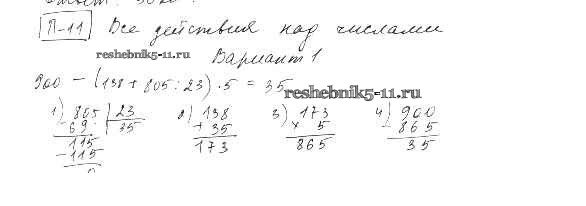 П-11 Все действия над числами
reshebnik5-11.ru
Вариант 1
900 - (138 + 805 : 23) · 5 = 35
reshebnik5-11.ru
1) 805 | 23
- 69 | 35
115
- 115
0
2) 138
+ 35
173
3) 173
× 5
865
4) 900
- 865
35